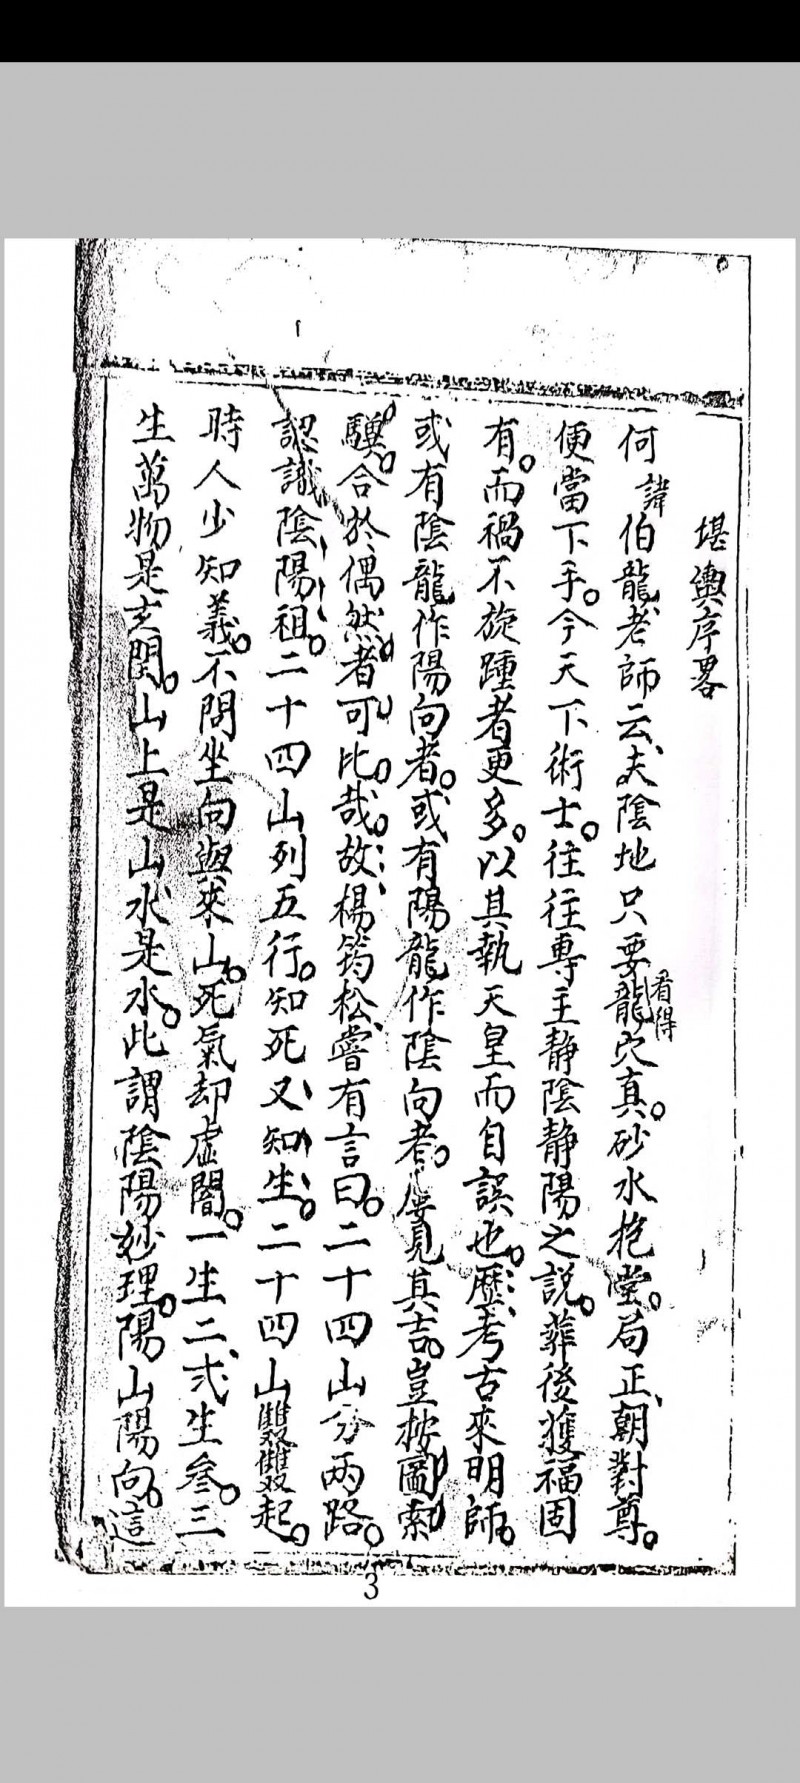 堪輿序畧
何諱伯龍老師云、夫陰地只要看得龍穴真。砂水抱堂。局正、朝對尊。
便當下手。今天下術士。往往專主靜陰靜陽之說。葬後獲福固
有。而禍不旋踵者更多。以其執天皇而自誤也。歷考古來明師。
或有陰龍作陽向者。或有陽龍作陰向者。屢見其吉。豈按圖索
驥。合於偶然者可比哉。故楊筠松嘗有言曰。二十四山分兩路。
認識陰陽祖。二十四山列五行。知死又知生。二十四山雙雙起。
時人少知義。不問坐向與來山。死氣却虛闇。一生二、弍生叄。三
生萬物是玄関。山上是山水是水。此謂陰陽妙理。陽山陽向。這
3